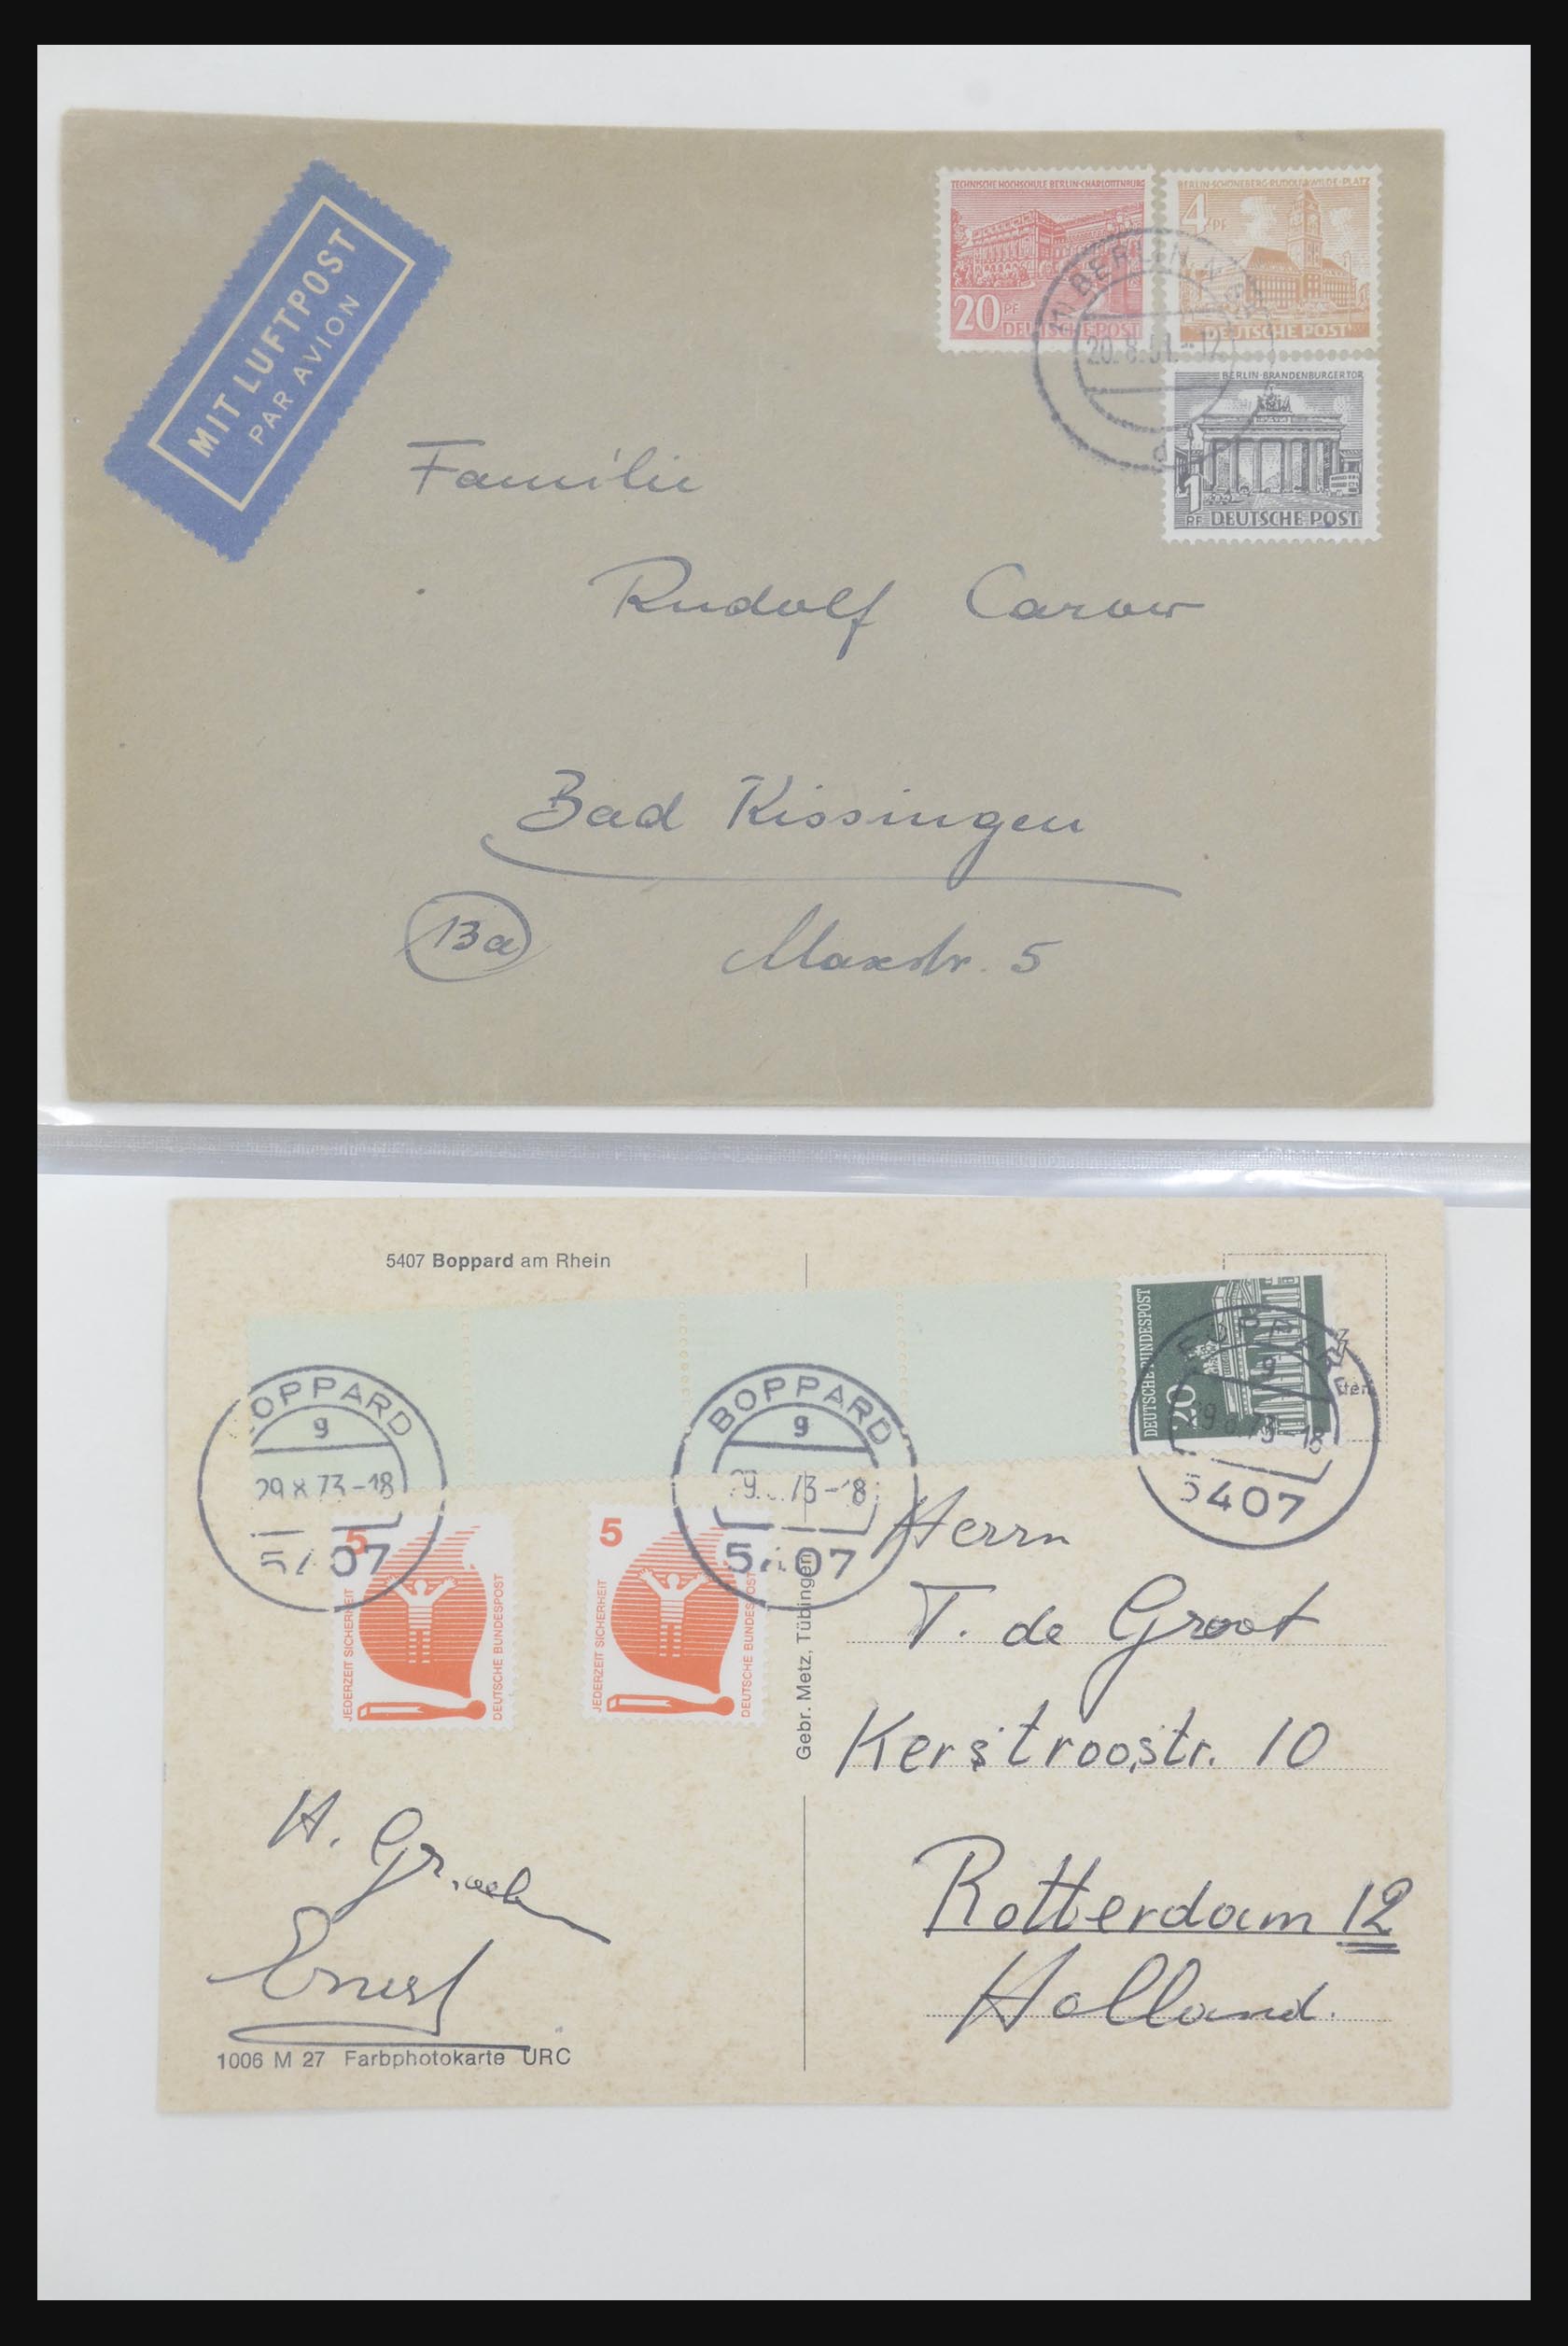 MIT LUFTPOST
PAR AVION
TECHNISCHE HOCHSCHULE BERLIN-CHARLOTTENBURG
20 PF
DEUTSCHE POST
BERLIN-SCHÖNEBERG·RUDOLF-WILDE-PLATZ
4 PF
DEUTSCHE POST
BERLIN
20.8.51.-12
d
BERLIN-BRANDENBURGER TOR
1 PF DEUTSCHE POST
Familie
Rudolf Carow
Bad Kissingen
13a
Maxstr. 5
5407 Boppard am Rhein
DEUTSCHE BUNDESPOST
20
BOPPARD
g
29 8 73-18
5407
BOPPARD
g
29. 73-18
5407
g
9 8 73-18
5407
5
JEDERZEIT SICHERHEIT
DEUTSCHE BUNDESPOST
5
JEDERZEIT SICHERHEIT
DEUTSCHE BUNDESPOST
Gebr. Metz, Tübingen
Herrn
T. de Groot
Kerstroostr. 10
Rotterdam 12
Holland.
H.
Ernst
1006 M 27 Farbphotokarte URC